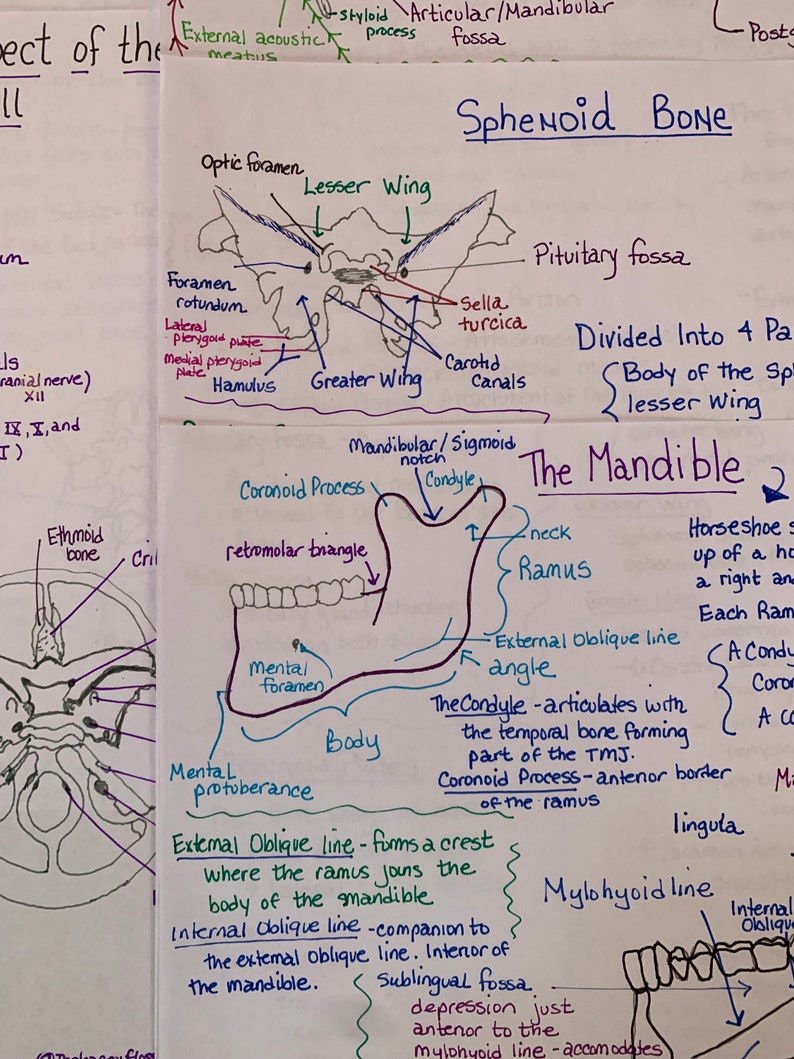 External acoustic
meatus
Styloid
process
Articular/Mandibular
fossa
Sphenoid Bone
Optic foramen
Lesser Wing
Pituitary fossa
Foramen
rotundum
Sella
turcica
Lateral
pterygoid plate
Medial pterygoid
plate
Hamulus
Greater Wing
Carotid
Canals
Divided Into 4 Pa
Body of the Sp
lesser Wing
of the
ranial nerve)
XII
IX, X, and
Ethmoid
bone
Cri
The Mandible
Mandibular/Sigmoid
notch
Coronoid Process
Condyle
neck
retromolar triangle
Ramus
External Oblique line
angle
Mental
foramen
Body
Mental
protuberance
Horseshoe s
up of a ho
a right an
Each Ram
A Condy
Coron
A Co
The Condyle - articulates with
the temporal bone forming
part of the TMJ.
Coronoid Process - anterior border
of the ramus
External Oblique line - forms a crest
where the ramus joins the
body of the mandible
Internal Oblique line - companion to
the external oblique line. Interior of
the mandible.
lingula
Mylohyoid line
Internal
Oblique
Sublingual fossa
depression just
anterior to the
mylohyoid line - accomodates